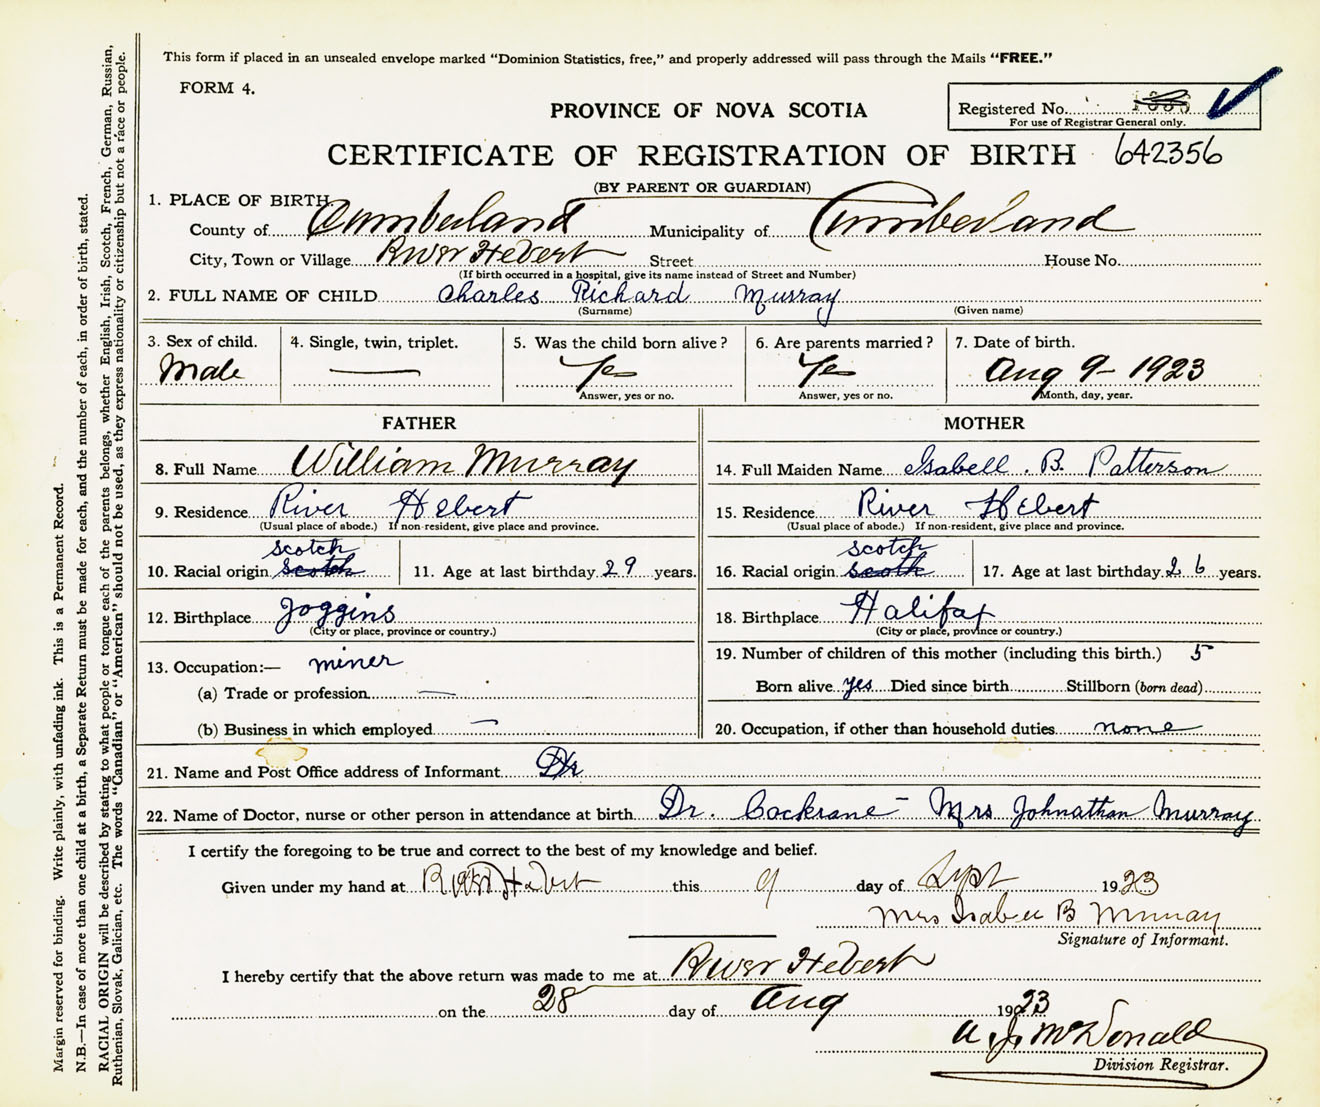 This form if placed in an unsealed envelope marked "Dominion Statistics, free," and properly addressed will pass through the Mails "FREE."
FORM 4.
Registered No.
For use of Registrar General only.
PROVINCE OF NOVA SCOTIA
CERTIFICATE OF REGISTRATION OF BIRTH 642356
(BY PARENT OR GUARDIAN)
1. PLACE OF BIRTH
County of Cumberland Municipality of Cumberland
City, Town or Village River Hebert Street House No.
(If birth occurred in a hospital, give its name instead of Street and Number)
2. FULL NAME OF CHILD Charles Richard Murray
(Surname) (Given name)
3. Sex of child. 4. Single, twin, triplet. 5. Was the child born alive? 6. Are parents married? 7. Date of birth.
Male — Yes Yes Aug 9 - 1923
Answer, yes or no. Answer, yes or no. Month, day, year.
FATHER
8. Full Name William Murray
9. Residence River Hebert
(Usual place of abode.) If non-resident, give place and province.
scotch
10. Racial origin scotch 11. Age at last birthday 29 years.
12. Birthplace Joggins
(City or place, province or country.)
13. Occupation:— miner
(a) Trade or profession —
(b) Business in which employed —
MOTHER
14. Full Maiden Name Isabell. B. Patterson
15. Residence River Hebert
(Usual place of abode.) If non-resident, give place and province.
scotch
16. Racial origin scoth 17. Age at last birthday 26 years.
18. Birthplace Halifax
(City or place, province or country.)
19. Number of children of this mother (including this birth.) 5
Born alive yes Died since birth Stillborn (born dead)
20. Occupation, if other than household duties none
21. Name and Post Office address of Informant Dr
22. Name of Doctor, nurse or other person in attendance at birth Dr. Cockrane - Mrs Johnathan Murray
I certify the foregoing to be true and correct to the best of my knowledge and belief.
Given under my hand at River Hebert this 9 day of Sept 1923
Mrs Isabell B Murray
Signature of Informant.
I hereby certify that the above return was made to me at River Hebert
on the 28 day of Aug 1923
A J McDonald
Division Registrar.
Margin reserved for binding. Write plainly, with unfading ink. This is a Permanent Record.
N.B.—In case of more than one child at a birth, a Separate Return must be made for each, and the number of each, in order of birth, stated.
RACIAL ORIGIN will be described by stating to what people or tongue each of the parents belongs, whether English, Irish, Scotch, French, German, Russian,
Ruthenian, Slovak, Galician, etc. The words "Canadian" or "American" should not be used, as they express nationality or citizenship but not a race or people.